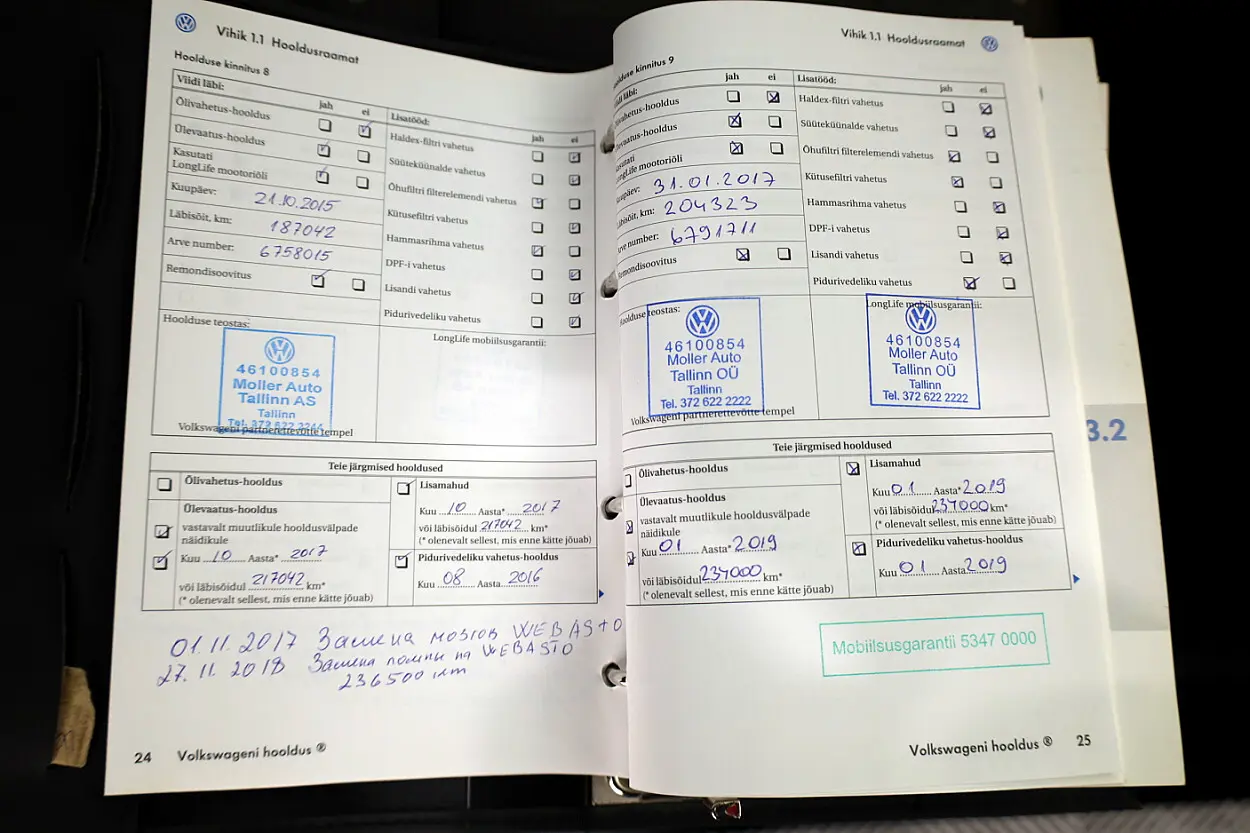 Vihik 1.1 Hooldusraamat
Hoolduse kinnitus 8
Viidi läbi:
jah ei
Õlivahetus-hooldus
Ülevaatus-hooldus
Kasutati
LongLife mootoriõli
Kuupäev: 21.10.2015
Läbisõit, km: 187042
Arve number: 6758015
Remondisoovitus
Lisatööd:
jah ei
Haldex-filtri vahetus
Süüteküünalde vahetus
Õhufiltri filterelemendi vahetus
Kütusefiltri vahetus
Hammasrihma vahetus
DPF-i vahetus
Lisandi vahetus
Pidurivedeliku vahetus
Hoolduse teostas:
46100854
Moller Auto
Tallinn AS
Tallinn
Tel. 372 622 2244
Volkswageni partnerettevõtte tempel
LongLife mobiilsusgarantii:
Teie järgmised hooldused
Õlivahetus-hooldus
Ülevaatus-hooldus
vastavalt muutlikule hooldusvälpade
näidikule
Kuu 10 Aasta* 2017
või läbisõidul 217042 km*
(* olenevalt sellest, mis enne kätte jõuab)
Lisamahud
Kuu 10 Aasta* 2017
või läbisõidul 217042 km*
(* olenevalt sellest, mis enne kätte jõuab)
Pidurivedeliku vahetus-hooldus
Kuu 08 Aasta 2016
01.11.2017 Замена мозгов WEBASTO
27.11.2018 Замена помпы на WEBASTO
236500 км
24 Volkswageni hooldus ®
Vihik 1.1 Hooldusraamat
Hoolduse kinnitus 9
Viidi läbi:
jah ei
Õlivahetus-hooldus
Ülevaatus-hooldus
Kasutati
LongLife mootoriõli
Kuupäev: 31.01.2017
Läbisõit, km: 204323
Arve number: 6791711
Remondisoovitus
Lisatööd:
jah ei
Haldex-filtri vahetus
Süüteküünalde vahetus
Õhufiltri filterelemendi vahetus
Kütusefiltri vahetus
Hammasrihma vahetus
DPF-i vahetus
Lisandi vahetus
Pidurivedeliku vahetus
Hoolduse teostas:
46100854
Moller Auto
Tallinn OÜ
Tallinn
Tel. 372 622 2222
Volkswageni partnerettevõtte tempel
LongLife mobiilsusgarantii:
46100854
Moller Auto
Tallinn OÜ
Tallinn
Tel. 372 622 2222
Teie järgmised hooldused
Õlivahetus-hooldus
Ülevaatus-hooldus
vastavalt muutlikule hooldusvälpade
näidikule
Kuu 01 Aasta* 2019
või läbisõidul 234000 km*
(* olenevalt sellest, mis enne kätte jõuab)
Lisamahud
Kuu 01 Aasta* 2019
või läbisõidul 234000 km*
(* olenevalt sellest, mis enne kätte jõuab)
Pidurivedeliku vahetus-hooldus
Kuu 01 Aasta 2019
Mobiilsusgarantii 5347 0000
Volkswageni hooldus ® 25
3.2